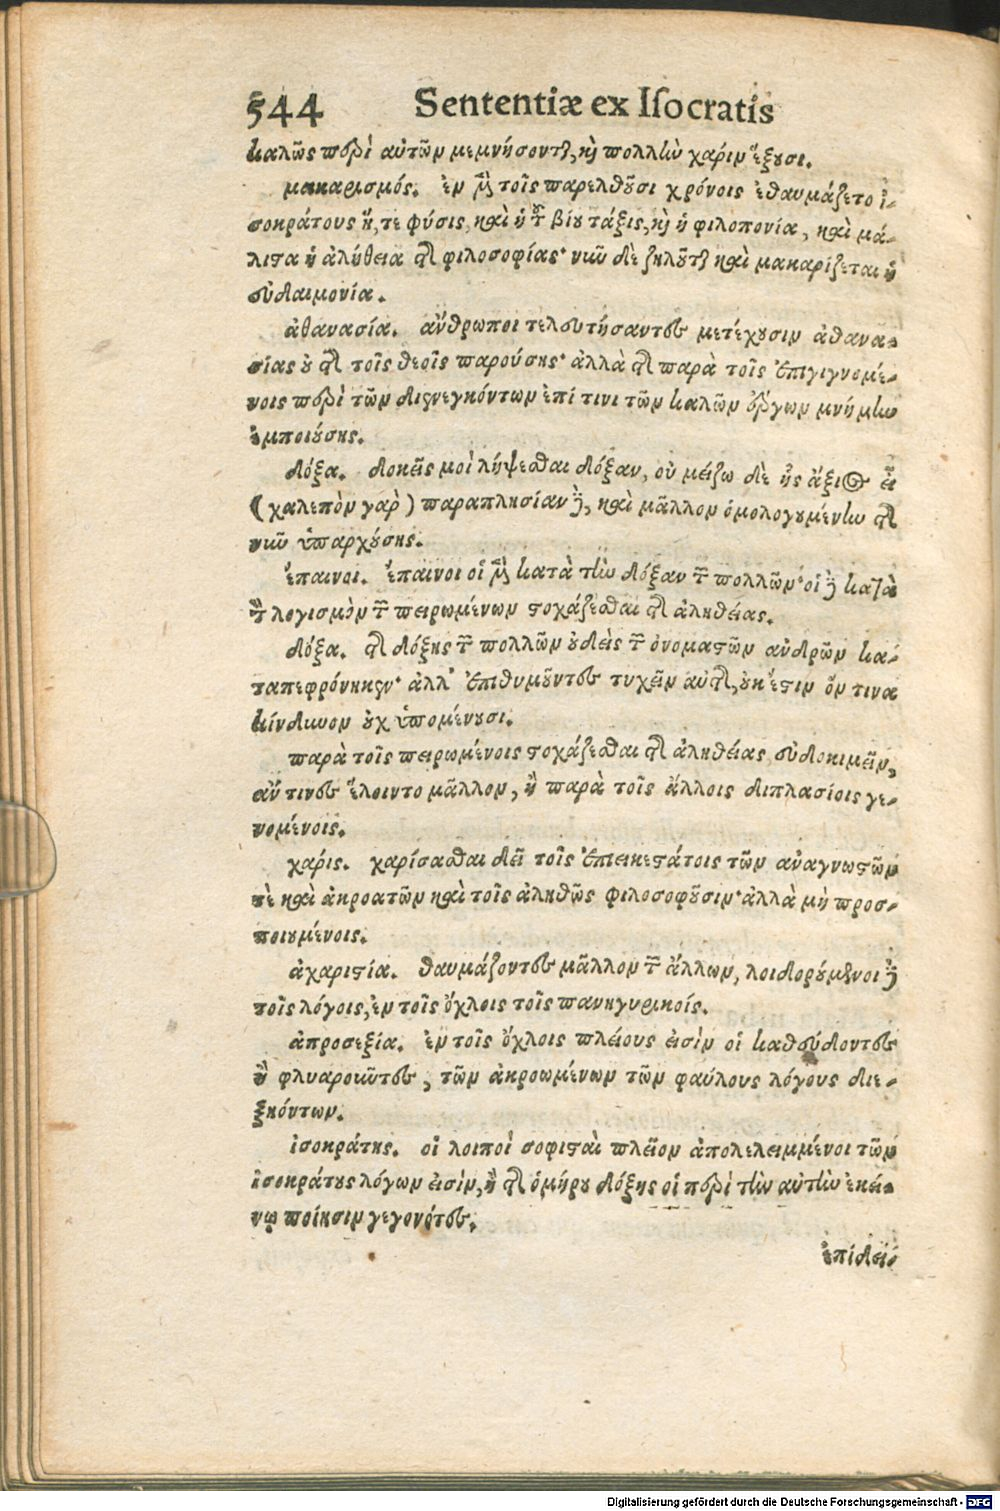 544 Sententiæ ex Iſocratis
καλῶς περὶ αὐτῶν μεμνήσονται, καὶ πολλὴν χάριν ἕξουσι.
μακαρισμός. ἐν μὲν τοῖς παρελθοῦσι χρόνοις ἐθαυμάζετο ἰ-
σοκράτους ἥ, τε φύσις, καὶ ἡ τοῦ βίου τάξις, καὶ ἡ φιλοπονία, καὶ μά-
λιϛα ἡ ἀλήθεια τῆς φιλοσοφίας· νῦν δὲ ζηλοῦται καὶ μακαρίζεται ἡ
εὐδαιμονία.
ἀθανασία. ἄνθρωποι τελευτήσαντες μετέχουσιν ἀθανα-
σίας οὐ τῆς τοῖς θεοῖς παρούσης· ἀλλὰ τῆς παρὰ τοῖς ἐπιγιγνομέ-
νοις περὶ τῶν διενεγκόντων ἐπί τινι τῶν καλῶν ἔργων μνήμην
ἐμποιούσης.
δόξα. δοκεῖς μοὶ λήψεσθαι δόξαν, οὐ μείζω δὲ ἧς ἄξιος εἶ
(χαλεπὸν γαρ) παραπλησίαν δὲ, καὶ μᾶλλον ὁμολογουμένην τῆς
νῦν ὑπαρχούσης.
ἔπαινοι. ἔπαινοι οἱ μὲν κατὰ τὴν δόξαν τῶν πολλῶν· οἱ δὲ κατὰ
τὸν λογισμὸν τῶν πειρωμένων ϛοχάζεσθαι τῆς ἀληθείας.
δόξα. τῆς δόξης τῶν πολλῶν οὐδεὶς τῶν ὀνομαϛῶν ἀνδρῶν κα-
ταπεφρόνηκεν· ἀλλ' ἐπιθυμοῦντες τυχεῖν αὐτῆς, οὐκ ἔϛιν ὅν τινα
κίνδυνον οὐχ ὑπομένουσι.
παρὰ τοῖς πειρωμένοις ϛοχάζεσθαι τῆς ἀληθείας εὐδοκιμεῖν,
ἄν τινες ἕλοιντο μᾶλλον, ἢ παρὰ τοῖς ἄλλοις διπλασίοις γε-
νομένοις.
χαρίς. χαρίσασθαι δεῖ τοῖς ἐπιεικεϛάτοις τῶν ἀναγνωϛῶν
τὲ καὶ ἀκροατῶν καὶ τοῖς ἀληθῶς φιλοσοφοῦσιν· ἀλλὰ μὴ προσ-
ποιουμένοις.
ἀχαριϛία. θαυμάζοντες μᾶλλον τῶν ἄλλων, λοιδορούμενοι δὲ
τοῖς λόγοις, ἐν τοῖς ὄχλοις τοῖς πανηγυρικοίς.
ἀπροσεξία. ἐν τοῖς ὄχλοις πλείους εἰσὶν οἱ καθεύδοντες
ἢ φλυαροῦντες, τῶν ἀκροωμένων τῶν φαύλους λόγους διε-
ξιόντων.
ἰσοκράτης. οἱ λοιποὶ σοφιϛαὶ πλεῖον ἀπολελειμμένοι τῶν
ἰσοκράτους λόγων εἰσίν, ἢ τῆς ὁμήρου δόξης οἱ περὶ τὴν αὐτὴν ἐκεί-
νῳ ποίησιν γεγονότες.
ἐπίδει-
Digitalisierung gefördert durch die Deutsche Forschungsgemeinschaft - DFG